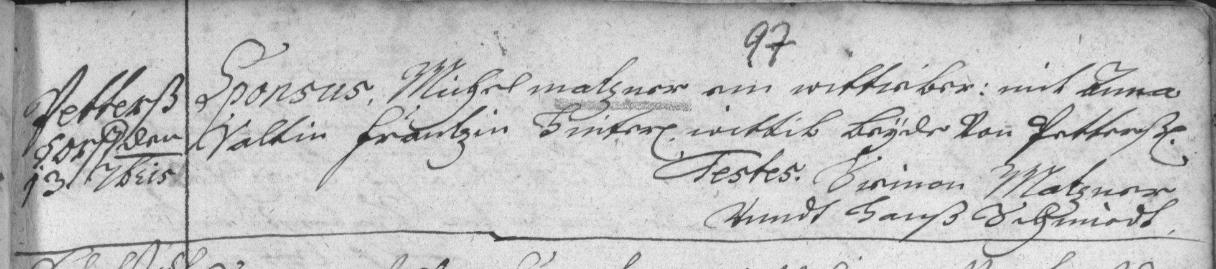 97
Petterß
dorf den
13 7bris
Sponsus. Michel matzner ein wittieber: mit Anna
Valtin Frantzin hinterl. wittib beÿde von Petterß.
Testes. Simon Matzner
vnndt Hanß Schmiedt.